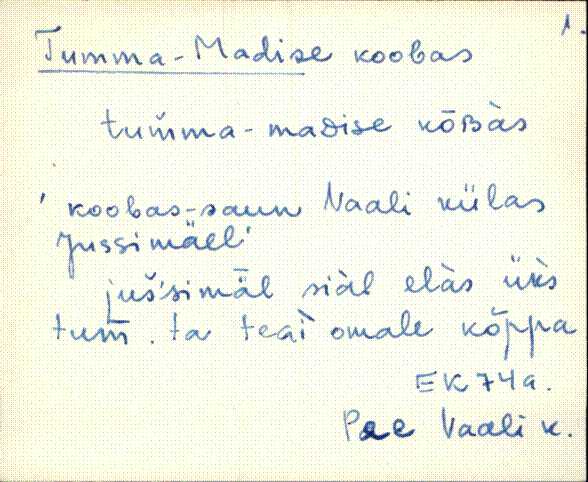 1.
Tumma-Madise koobas
tum̆ma-madise kōʙàs
' koobas-saun Vaali külas
Jussimäel'
juš's̀imäl siàl elàs üks̀
tum̄. ta teaì omale kōppa
EK 74a.
Pae Vaali k.